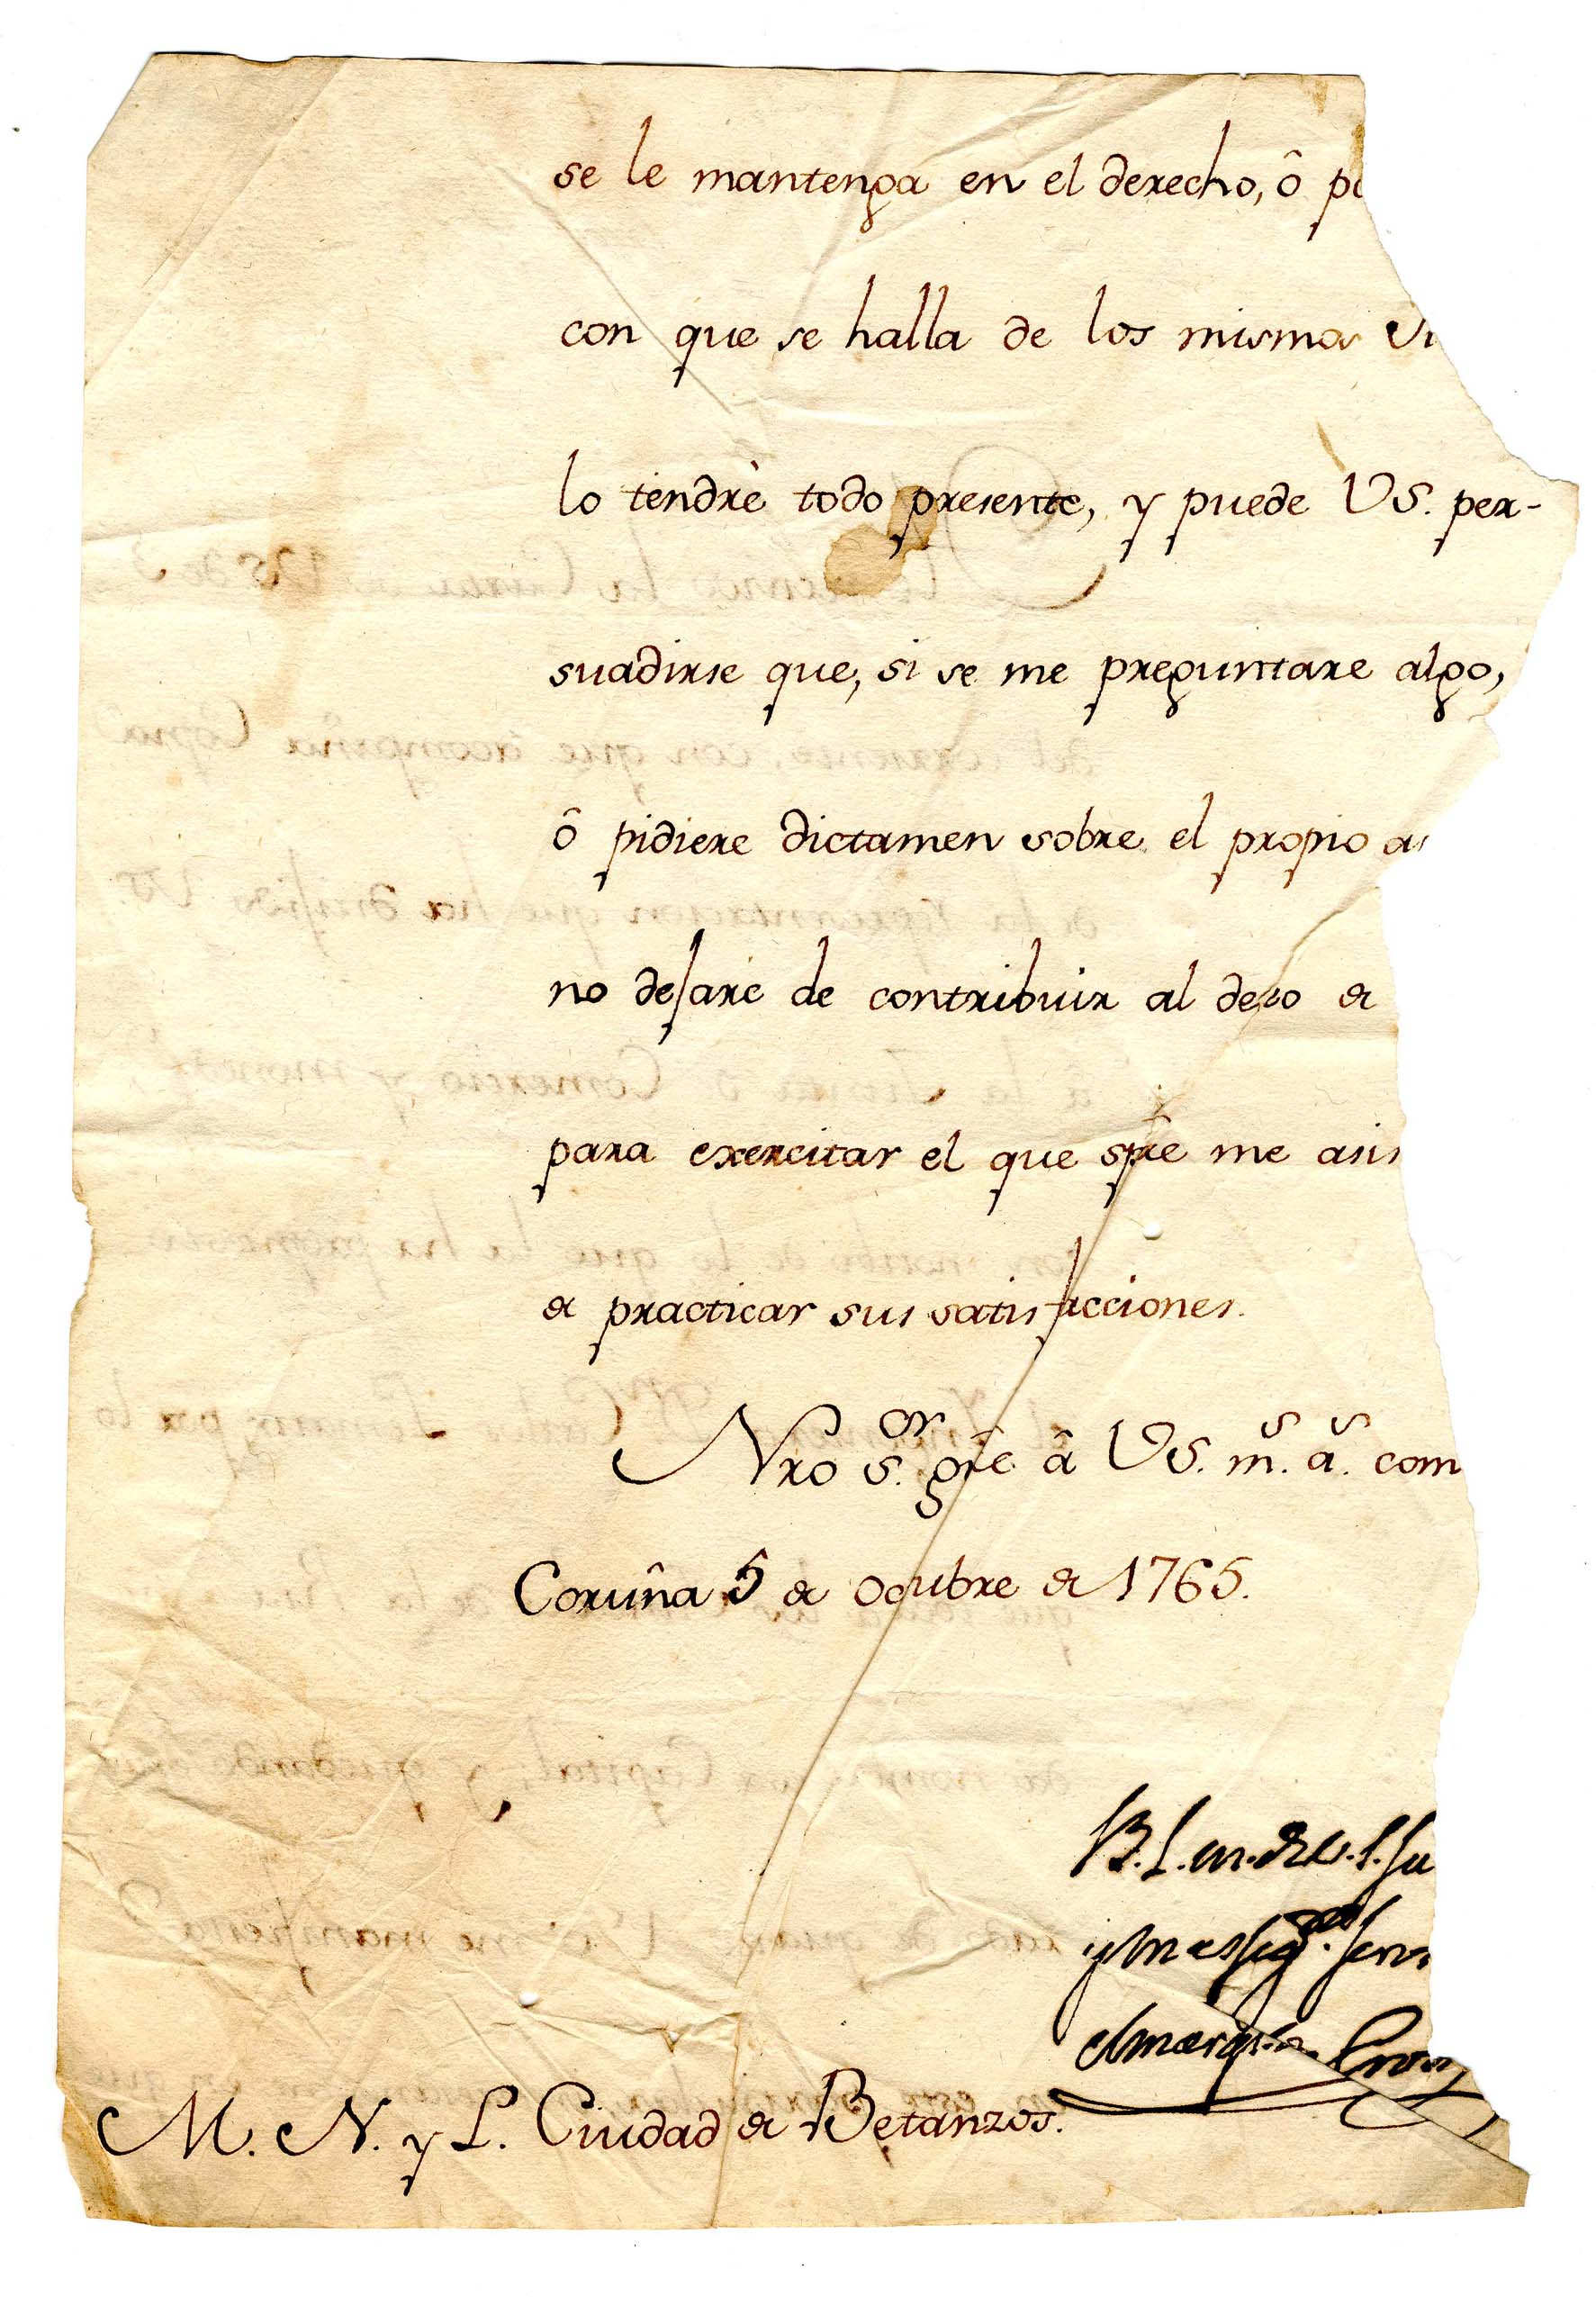 se le mantenga en el derecho, ô
con que se halla de los mismos
lo tendrè todo presente, y puede VS. per-
suadirse que, si se me preguntare algo,
ô pidiere dictamen sobre el propio
no dejaré de contribuir al deseo de
para exercitar el que spre me asis
de practicar sus satisfacciones.
Nro s.or gûe â VS. m.s a.s com
Coruña 5 de Octubre de 1765.
B. l. m. de V. S. su
y mas seg.
el marq.s de Croix
M. N. y L. Ciudad de Betanzos.